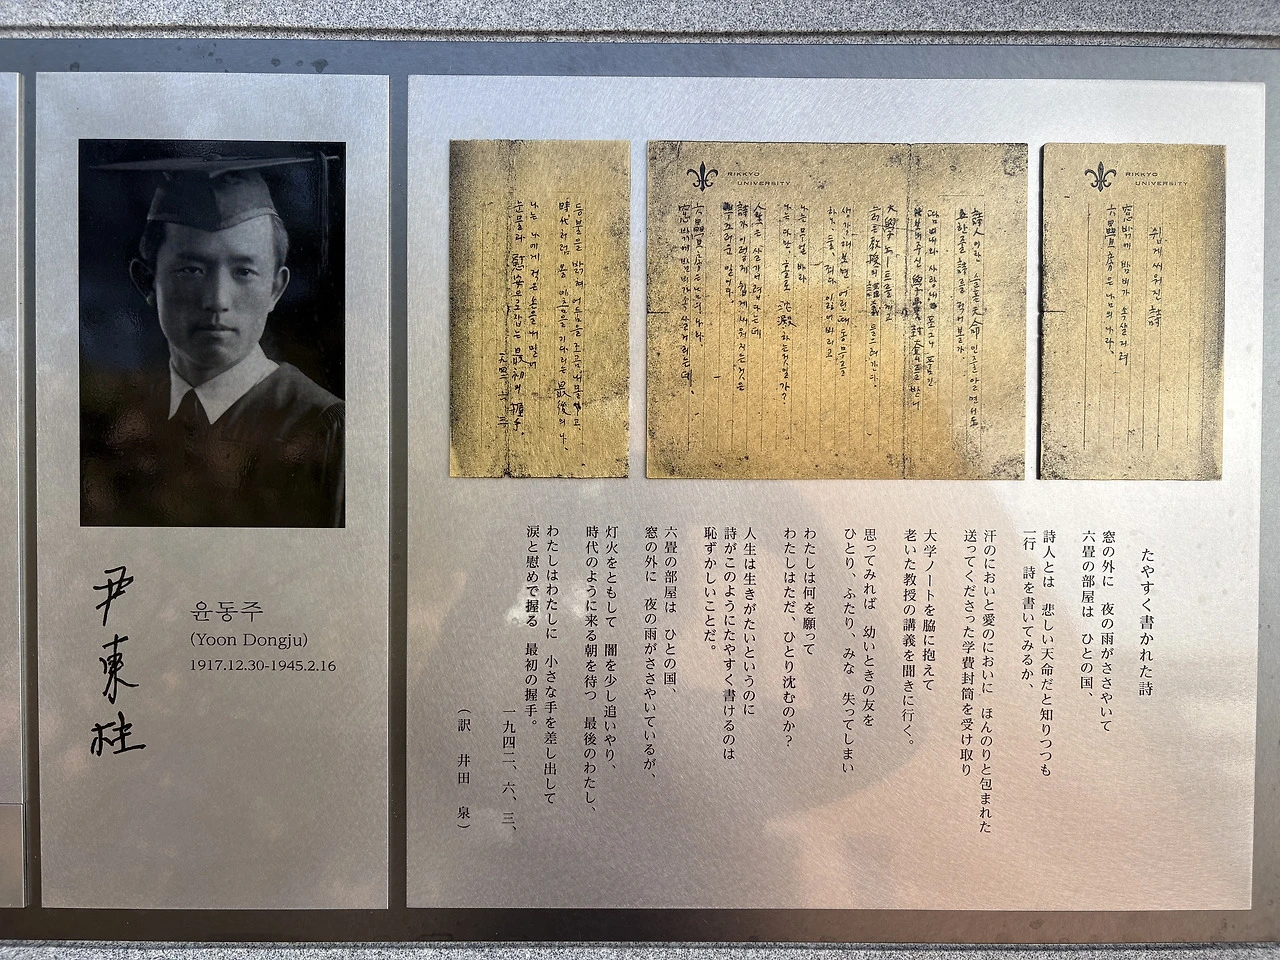 尹東柱
윤동주
(Yoon Dongju)
1917.12.30-1945.2.16
RIKKYO
UNIVERSITY
쉽게 씨워진 詩
窓밖에 밤비가 속살거려
六疊房은 남의 나라,
RIKKYO
UNIVERSITY
詩人이란 슬픈天命인줄알면서도
한줄詩를 적어볼가,
땀내와 사랑내 포그니 품긴
보내주신 學費封套를받어
大學노―트를 끼고
늙은敎授의 講義 들으려간다.
생각해보면 어린때 동무를
하나, 둘, 죄다 잃어버리고
나는 무얼 바라
나는 다만, 홀로 沈澱하는것일가?
人生은 살기어렵다는데
詩가 이렇게 쉽게 씨워지는것은
부끄러운 일이다.
六疊房은 남의나라.
窓밖에 밤비가속살거리는데,
등불을 밝혀 어둠을 조곰 내몰고,
時代처럼 올 아츰을 기다리는 最後의 나,
나는 나에게 적은 손을 내밀어
눈물과 慰安으로잡는 最初의 握手.
たやすく書かれた詩
窓の外に　夜の雨がささやいて
六畳の部屋は　ひとの国、
詩人とは　悲しい天命だと知りつつも
一行　詩を書いてみるか、
汗のにおいと愛のにおいに　ほんのりと包まれた
送ってくださった学費封筒を受け取り
大学ノートを脇に抱えて
老いた教授の講義を聞きに行く。
思ってみれば　幼いときの友を
ひとり、ふたり、みな　失ってしまい
わたしは何を願って
わたしはただ、ひとり沈むのか？
人生は生きがたいというのに
詩がこのようにたやすく書けるのは
恥ずかしいことだ。
六畳の部屋は　ひとの国、
窓の外に　夜の雨がささやいているが、
灯火をともして　闇を少し追いやり、
時代のように来る朝を待つ　最後のわたし、
わたしはわたしに　小さな手を差し出して
涙と慰めで握る　最初の握手。
一九四二、六、三、
（訳　井田　泉）